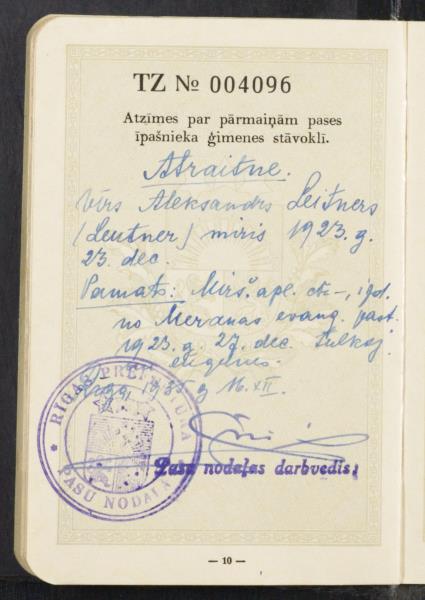 TZ № 004096
Atzīmes par pārmaiņām pases
īpašnieka ģimenes stāvoklī.
Atraitne.
Vīrs Aleksandrs Leitners
(Leutner) miris 1923. g.
23. dec.
Pamats: Mirš. apl. izd.
no Meranas evang. past.
1923. g. 27. dec. tulkoj.
Rīgā, 1935 g 16. XII.
RĪGAS PREFEKTŪRA
PASU NODAĻA
Pasu nodaļas darbvedis:
— 10 —